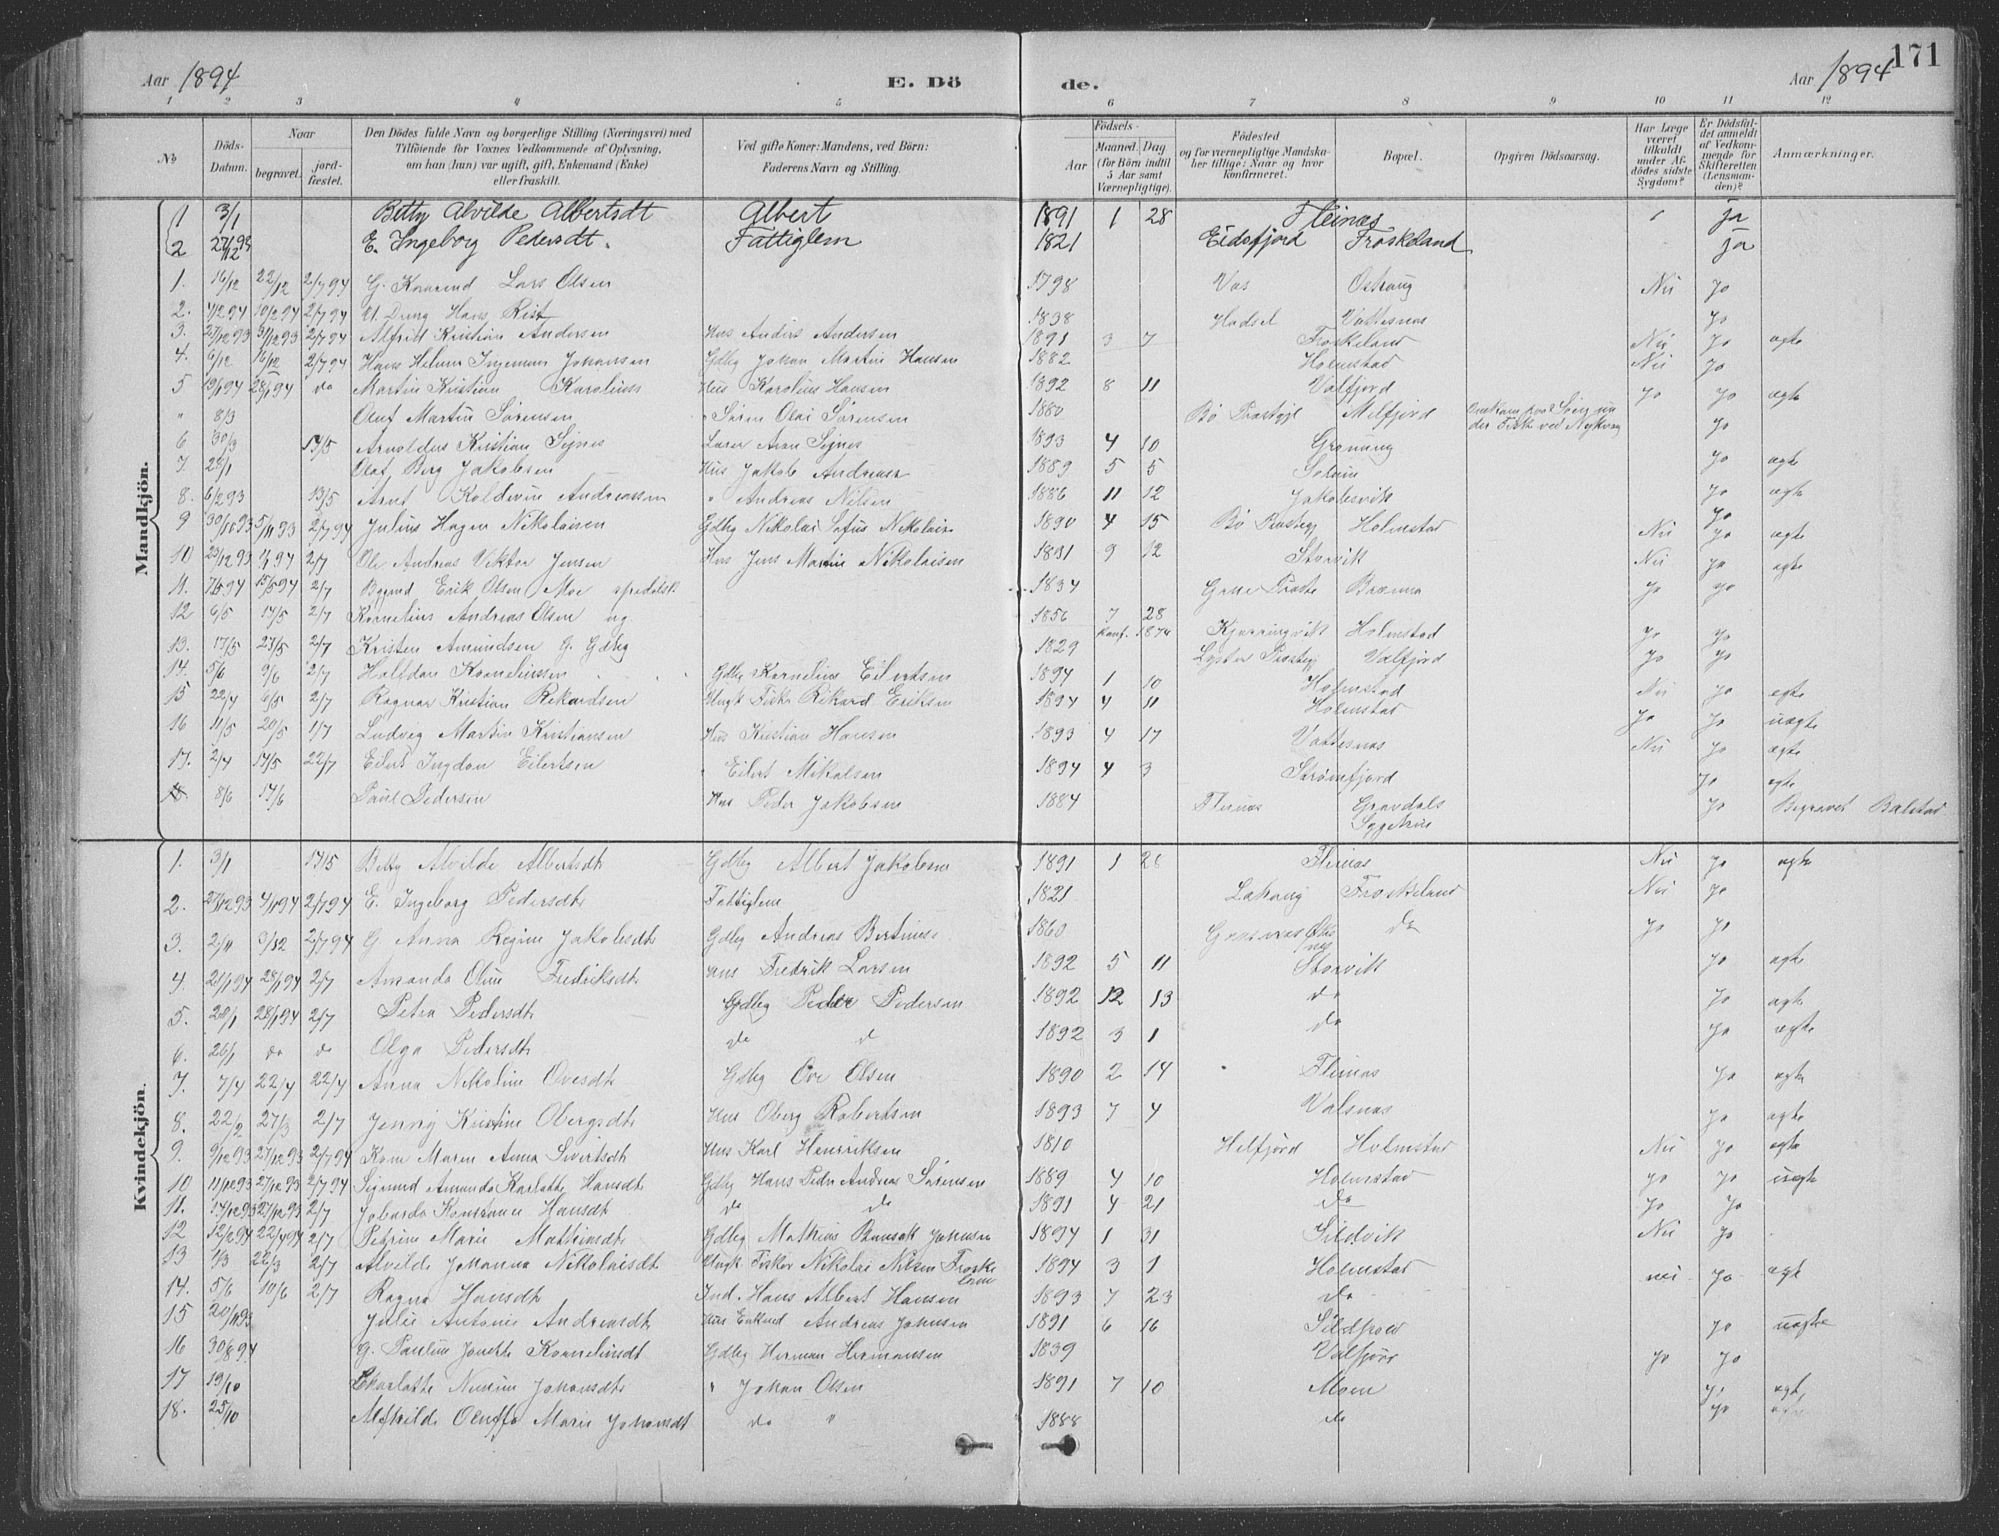 171
Aar 1894 E. Dö
de. Aar 1894
1 2 3 4 5 6 7 8 9 10 11 12
No
Döds-Datum.
Naar
begravet.
jord-fæstet.
Den Dödes fulde Navn og borgerlige Stilling (Næringsvei) med
Tilföiende for Voxnes Vedkommende af Oplysning,
om han (hun) var ugift, gift, Enkemand (Enke)
eller fraskilt.
Ved gifte Koner: Mandens, ved Börn:
Faderens Navn og Stilling.
Födsels-
Aar
Maaned. Dag
(for Börn indtil
5 Aar samt
Værnepligtige).
Födested
og for værnepligtige Mandska-
ber tillige: Naar og hvor
konfirmeret.
Bopæl.
Opgiven Dödsaarsag.
Har Læge
været
tilkaldt
under Af-
dödes sidste
Sygdom?
Er Dödsfal-
det anmeldt
af Vedkom-
mende for
Skifteretten
(Lensman-
den)?
Anmærkninger.
Mandkjön.
1 3/1 Betty Alvilde Albertsdt Albert 1891 1 28 Fleinæs ja
2 27/12 93 E. Ingeborg Pedersdt. Fattiglem 1821 Eidsfjord Froskeland ja
1. 16/12 22/12 2/7 94 G. Lars Olsen 1798 Vos Nei Jo
2. 4/2 94 10/2 94 2/7 94 U. Dreng Hans Rist 1838 Hadsel Vottesnæs Jo
3. 27/12 93 31/12 93 2/7 94 Alfrid Kristian Andersen Hus Anders Andersen 1891 3 7 Froskeland Nei Jo ægte
4. 6/12 16/12 2/7 94 Hans Helmer Ingeman Johansen Gdbg Johan Martin Hansen 1882 Holmstad Nei Jo
5 19/1 94 28/1 94 do Martin Kristian Karoliuss Hus Karolius Hansen 1892 8 11 Valfjord Jo Jo ægte
" 8/3 Oluf Martin Sørensen " Søren Olai Sørensen 1880 Bø Præstgj Melfjord Jo
6 30/3 14/5 Arnoldus Kristian Signes Lærer Aron Signes 1893 4 10 Grønning Jo ægte
7. 29/1 Olaf Berg Jakobsen Hus Jakob Andreas 1889 5 5 Jo ægte
8. 6/2 93 13/5 Arnt Koldevin Andreassen " Andreas Nilsen 1886 11 12 Jakobsvik Jo
9 30/10 93 5/11 93 2/7 94 Julius Hagen Nikolaisen Gdbg Nikolai Sofus Nikolais 1890 4 15 Bø Præstegj Holmstad Nei Jo ægte
10 23/12 93 1/1 94 2/7 Ole Andreas Viktor Jensen Hus Jens Martin Nikolaisen 1891 9 12 Storvik Nei Jo ægte
11. 7/5 94 15/5 94 2/7 Erik Olsen Moe spedalsk 1834 Jo Jo
12 6/5 14/5 2/7 Kornelius Andreas Olsen ug 1856 7 28 Konf. 1874 Kjerringvik Holmstad Jo Jo
13. 17/5 27/5 2/7 Kristen Amundsen G. Gdbg 1829 Lyster Præstegj Valfjord Jo Jo
14. 5/6 9/6 2/7 Halfdan Korneliussen Gdbg Kornelius Eilertsen 1894 1 10 Holmstad Nei Jo ægte
15 22/4 6/5 2/7 Ragnar Kristian Rikardsen Ungk Fisker Rikard Eriksen 1894 4 11 Holmstad Jo Jo uægte
16 11/5 20/5 1/7 Ludvig Martin Kristiansen Hus Kristian Hansen 1893 4 17 Vottesnæs Nei Jo ægte
17. 2/4 14/5 22/7 Eilert Ingdon Eilertsen " Eilert Mikalsen 1894 4 3 Strømfjord Jo ægte
18. 8/6 14/6 Paul Pedersen Hus Peder Jakobsen 1884 Fleinæs Gravdals Sygehus Jo Begravet Balstad
Kvindekjön.
1. 3/1 14/5 Betty Alvilde Albertsdt Gdbg Albert Jakobsen 1891 1 28 Fleinæs Nei Jo ægte
2. 27/12 93 4/1 94 2/7 94 E. Ingeborg Pedersdt Fattiglem 1821 Froskeland Nei Jo
3. 2/11 9/12 2/7 94 G Anna Regine Jakobsdt Gdbg Andreas Bertinuss 1860 do Jo Jo
4. 21/1 94 28/1 94 2/7 Amanda Oline Fredriksdt Hus Fredrik Larsen 1892 5 11 Storvik Jo ægte
5. 20/1 28/1 94 2/7 Petra Pedersdt Gdbg Peder Pedersen 1892 12 13 do Jo ægte
6. 26/1 do do Olga Pedersdt do d 1892 3 1 do Jo ægte
7. 7/4 22/4 22/4 Anna Nikoline Ovesdt Gdbg Ove Olsen 1890 2 14 Fleinæs Jo ægte
8. 22/2 27/3 2/7 Jenny Kristine Obergsdt Hus Oberg Robertsen 1893 7 4 Valsnæs Jo ægte
9. 9/12 93 27/12 93 2/7 94 Kone Maren Anna Sivertsdt Hus Karl Henriksen 1810 Helfjord Holmstad Nei Jo ægte
10 11/12 93 27/12 93 2/7 94 Signud Amanda Karlotte Hansdt Gdbg Hans Peder Andreas Sørensen 1889 4 10 Holmstad Jo Jo uægte
11. 17/12 93 27/12 93 2/7 Jobarda Konstance Hansdt do do 1891 4 21 do Jo Jo
12 12/2 94 22/4 94 2/7 Petrine Marie Mathiasdt Gdbg Mathias Johnsen 1894 1 31 Sildvik Nei Jo
13 1/3 22/3 2/7 Alvilde Johanna Nikolaisdt Ungk Fisker Nikolai Nilsen Froskeland 1894 3 1 Holmstad nei Jo ægt
14. 5/6 10/6 2/7 Ragna Hansdt Ind. Hans Albert Hansen 1893 7 23 do
15 20/11 93 Julie Antonie Andreasdt Hus Enkmd Andreas Johnsen 1891 6 16 Jo uægte
16 30/8 94 G. Pauline Jonette Korneliusdt Gdbg Herman Hermansen 1839 Valfjord Jo Jo
17 19/10 Charlotte Johansdt " Johan Olsen 1891 7 10 Moen Jo ægt
18. 25/10 Mathilde Oluffa Marie Johansdt do " 1888 do Jo